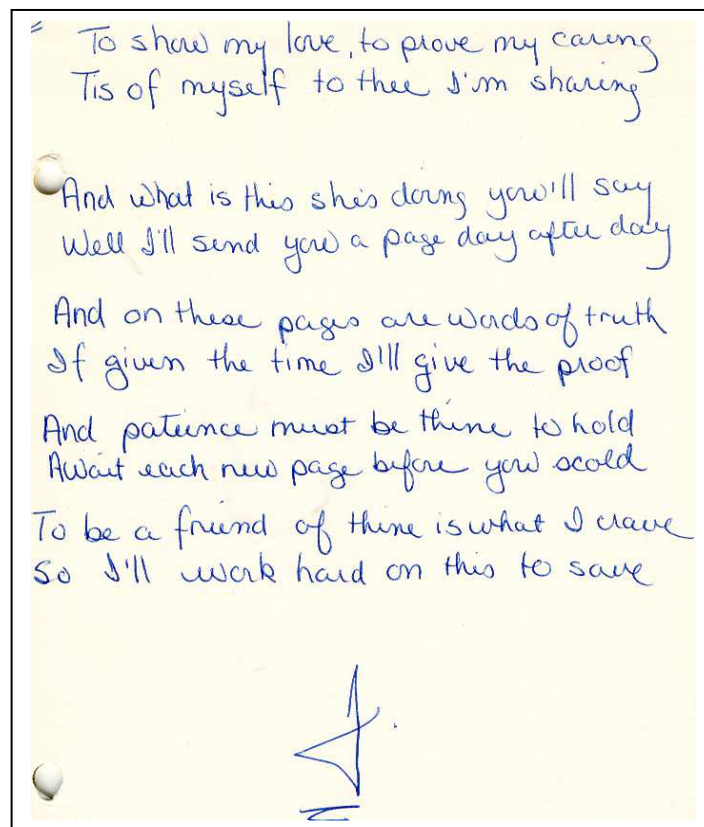 To show my love, to prove my caring
Tis of myself to thee I'm sharing
And what is this she's doing you'll say
Well I'll send you a page day after day
And on these pages are words of truth
If given the time I'll give the proof
And patience must be thine to hold
Await each new page before you scold
To be a friend of thine is what I crave
So I'll work hard on this to save